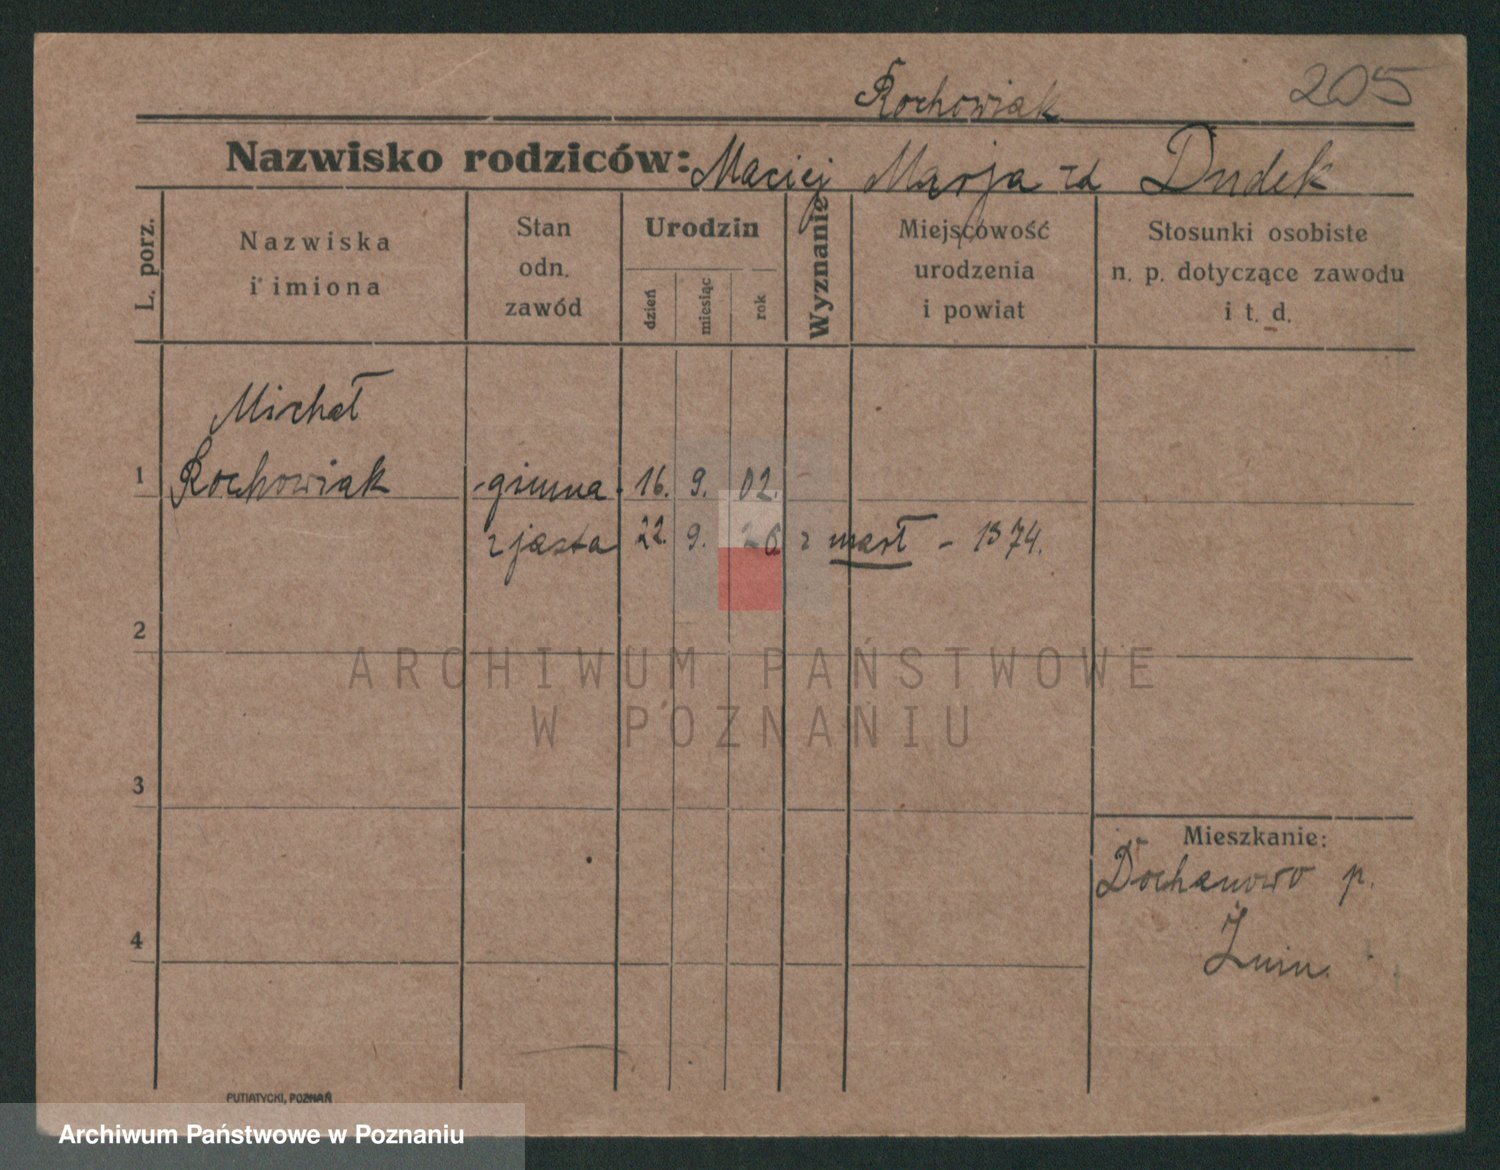 Rochowiak 205
Nazwisko rodziców: Maciej Marja zd Dudek
L. porz.
Nazwiska
i imiona
Stan
odn.
zawód
Urodzin
dzień
miesiąc
rok
Wyznanie
Miejscowość
urodzenia
i powiat
Stosunki osobiste
n. p. dotyczące zawodu
i t. d.
Michał
1 Rochowiak gimna 16. 9. 02.
zjasta 22. 9. 26 zmarł - 1374.
2
ARCHIWUM PAŃSTWOWE
W POZNANIU
3
Mieszkanie:
Dochanowo p.
Żnin.
4
PUTIATYCKI, POZNAŃ
Archiwum Państwowe w Poznaniu